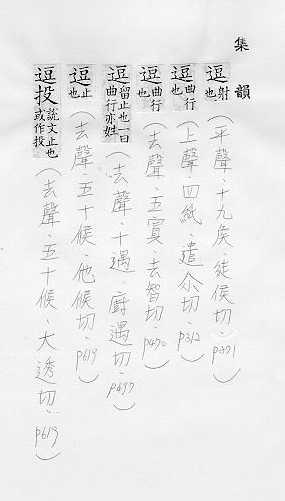 集韻
逗射也(平聲.十九矦.徒侯切.p271)
逗曲行也(上聲.四紙.遣尒切.p312)
逗曲行也(去聲.五寘.去智切.p470)
逗留止也一曰曲行亦姓(去聲.十遇.廚遇切.p497)
逗止也(去聲.五十候.他候切.p619)
逗投說文止也或作投(去聲.五十候.大透切.p619)